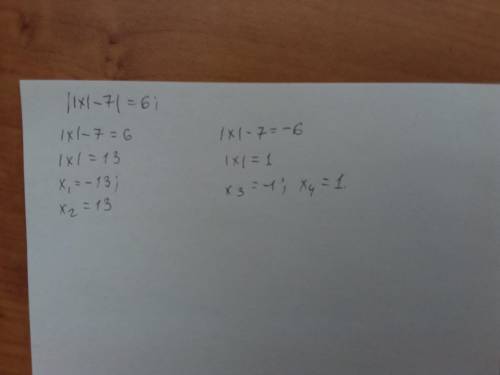 ||x|-7|=6;
|x|-7=6
|x|=13
x₁=-13;
x₂=13
|x|-7=-6
|x|=1
x₃=-1; x₄=1